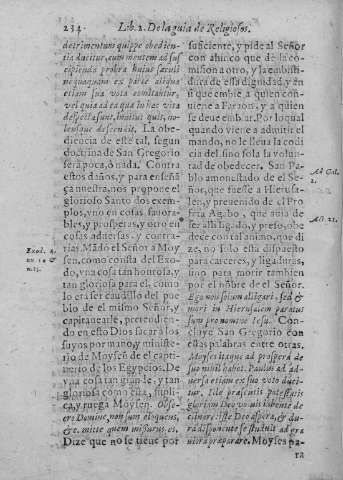 234 Lib. 2. De la guia de Religiosos.
detrimentum quippe obedien-
tia ducitur, cum mentem ad suc
cipienda probra huius sæculi
nequaquam ex parte aliqua
etiam sua vota comitantur,
vel quia ad ea qua in hac vita
despecta sunt, inuitus quis, no-
lensque descendit. La obe-
diencia de este tal, segun
doctrina de San Gregorio
serà poca, ò nada. Contra
estos daños, y para enseñã
ça nuestra, nos propone el
glorioso Santo dos exem-
plos, vno en cosas fauora-
bles, y prosperas, y otro en
cosas aduersas y contra-
rias. Mãdò el Señor a Moy
sen, como consta del Exo-
do, vna cosa tan honrosa, y
tan gloriosa para el, como
lo era ser caudillo del pue
blo de el mismo Señor, y
capitanearle, pretendiẽ-
do en esto Dios sacar à los
suyos por mano, y ministe-
rio de Moysen de el capti-
uerio de los Egypcios. De
vna cosa tan grande, y tan
gloriosa como esta, supli-
ca, y ruega Moysen. Obse-
cro Domine, non sum eloquens,
&c. mitte quem missurus es.
Dize que no se tiene por
Exod. 4.
nu. 10 &
n. 13.
suficiente, y pide al Señor
con ahinco que dè la co-
mission a otro, y la embisti-
dura de essa dignidad, y en
si que embie a quien con-
uiene a Faraon, y a quien
se deue embiar. Por lo qual
quando viene a admitir el
mando, no le lleua la codi
cia del sino sola la volun-
tad de obedecer. San Pa-
blo amonestado de el Se-
ñor, que fuesse a Hierusa-
len, y preuenido de el Pro
feta Agabo, que auia de
ser alli ligado, y preso, obe
dece con tal animo, que di
ze, no solo està dispuesto
para carceres, y ligaduras,
sino para morir tambien
por el nõbre de el Señor.
Ego non solum alligari, sed &
mori in Hierusalem paratus
sum pro nomine Iesu. Con-
cluye San Gregorio con
estas palabras entre otras.
Moyses itaque ad prospera de
suo nihil habet. Paulus ad ad-
uersa etiam ex suo voto duci-
tur. Ille præsentis potestatis
gloriam Deo volens iubente de
clinare: iste Deo aspera, & du-
ra disponente se studuit ad gra
uiora præparare. Moyses pa-
ra
Ad Gal.
2.
Act. 21.